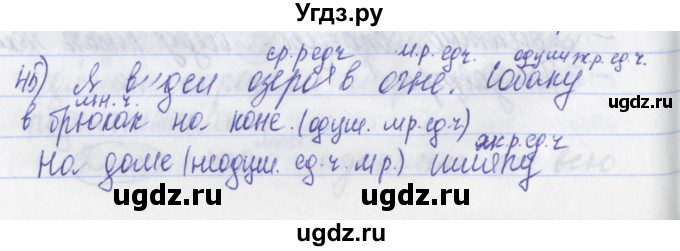 Угдз.ру
ср.р.ед.ч м.р. ед.ч. одуш.ж.р. ед.ч.
45) Я видел озеро в огне. Собаку
мн.ч.
в брюках на коне. (одуш. м.р.ед.ч)
ж.р.ед.ч
На доме (неодуш. ед.ч. м.р.) шляпу
ugdz.ru ugdz.ru
ugdz.ru ugdz.ru
ugdz.ru ugdz.ru ugdz.ru